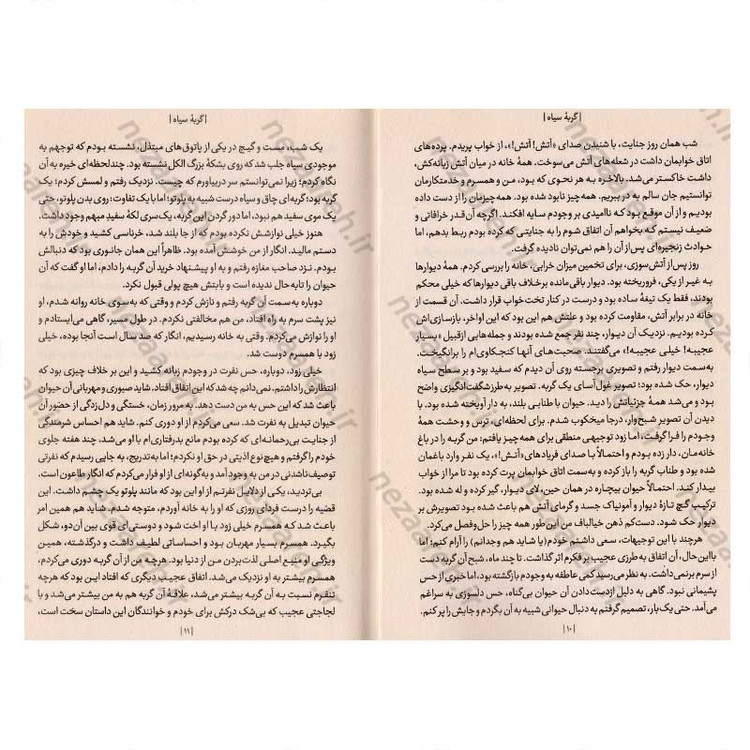 |گربهٔ سیاه|
شب همان روز جنایت، با شنیدن صدای «آتش! آتش!»، از خواب پریدم. پرده‌های
اتاق خوابمان داشت در شعله‌های آتش می‌سوخت. همهٔ خانه در میان آتش زبانه‌کش،
داشت خاکستر می‌شد. بالاخره به هر نحوی که بود، من و همسرم و خدمتکارمان
توانستیم جان سالم به در ببریم. همه‌چیز نابود شده بود. همه‌چیزمان را از دست داده
بودیم و از آن موقع بود که ناامیدی بر وجودم سایه افکند. اگرچه آن‌قدر خرافاتی و
ضعیف نیستم که بخواهم آن اتفاق شوم را به جنایتی که کرده بودم ربط بدهم، اما
حوادث زنجیره‌ای پس از آن را هم نمی‌توان نادیده گرفت.
روز پس از آتش‌سوزی، برای تخمین میزان خرابی، خانه را بررسی کردم. همهٔ دیوارها
به غیر از یکی، فروریخته بود. دیوار باقی‌مانده برخلاف باقی دیوارها که خیلی محکم
بودند، فقط یک تیغهٔ ساده بود و درست در کنار تخت‌خواب قرار داشت. آن قسمت از
خانه در برابر آتش، مقاومت کرده بود و علتش هم این بود که این اواخر، بازسازی‌اش
کرده بودیم. نزدیک آن دیوار، چند نفر جمع شده بودند و جمله‌هایی ازقبیل «بسیار
عجیبه! خیلی عجیبه!»، می‌گفتند. صحبت‌های آنها کنجکاوی‌ام را برانگیخت.
به‌سمت دیوار رفتم و تصویری برجسته روی آن دیدم که سفید بود و بر سطح سیاه
دیوار، حک شده بود؛ تصویر غول‌آسای یک گربه. تصویر به‌طرز شگفت‌انگیزی واضح
بود و می‌شد همهٔ جزئیاتش را دید. حیوان با طنابی بلند، به دار آویخته شده بود. با
دیدن آن تصویر شبح‌وار، درجا میخکوب شدم. برای لحظه‌ای، ترس و وحشت همهٔ
وجودم را فرا گرفت، اما زود توجیهی منطقی برای همه‌چیز یافتم؛ من گربه را در باغ
خانه‌مان، دار زده بودم و احتمالاً با صدای فریادهای «آتش!»، یک نفر وارد باغمان
شده بود و طناب گربه را باز کرده و به‌سمت اتاق خوابمان پرت کرده بود تا مرا از خواب
بیدار کند. احتمالاً حیوان بیچاره در همان حین، لای دیوار، گیر کرده و له شده بود.
ترکیب گچ تازهٔ دیوار و آمونیاک جسد و گرمای آتش هم باعث شده بود تصویرش بر
دیوار حک شود. دست‌کم ذهن خیالباف من این‌طور همه چیز را حل‌وفصل می‌کرد.
هرچند با این توجیهات، سعی داشتم خودم (یا شاید هم وجدانم) را آرام کنم؛ اما
بااین‌حال، آن اتفاق به‌طرزی عجیب بر فکرم اثر گذاشت. تا چند ماه، شبح آن گربه دست
از سرم برنمی‌داشت. به نظر می‌رسید کمی عاطفه به وجودم بازگشته بود، اما خبری از حس
پشیمانی نبود. گاهی به دلیل از‌دست‌دادن آن حیوان بی‌گناه، حس دلسوزی به سراغم
می‌آمد. حتی یک‌بار، تصمیم گرفتم به دنبال حیوانی شبیه به آن بگردم و جایش را پر کنم.
|۱۰|
|گربهٔ سیاه|
یک شب، مست و گیج در یکی از پاتوق‌های مبتذل، نشسته بودم که توجهم به
موجودی سیاه جلب شد که روی بشکهٔ بزرگ الکل نشسته بود. چند لحظه‌ای خیره به آن
نگاه کردم؛ زیرا نمی‌توانستم سر دربیاورم که چیست. نزدیک رفتم و لمسش کردم؛ یک
گربه بود؛ گربه‌ای چاق و سیاه درست شبیه به پلوتو؛ اما با یک تفاوت؛ روی بدن پلوتو، حتی
یک موی سفید هم نبود، اما دور گردن این گربه، یک‌سری لکهٔ سفیدِ مبهم وجود داشت.
هنوز خیلی نوازشش نکرده بودم که از جا بلند شد، خرناسی کشید و خودش را به
دستم مالید. انگار از من خوشش آمده بود. ظاهراً این همان جانوری بود که دنبالش
بودم. نزد صاحب مغازه رفتم و به او پیشنهاد خرید آن گربه را دادم، اما او گفت که آن
حیوان را تا‌به‌حال ندیده است و بابتش هیچ پولی قبول نکرد.
دوباره به‌سمت آن گربه رفتم و نازش کردم و وقتی که به‌سوی خانه روانه شدم، او
نیز پشت سرم به راه افتاد، من هم مخالفتی نکردم. در طول مسیر، گاهی می‌ایستادم و
او را نوازش می‌کردم. وقتی به خانه رسیدیم، انگار که صد سال است آنجا بوده، خیلی
زود با همسرم دوست شد.
خیلی زود، دوباره، حس نفرت در وجودم زبانه کشید و این بر خلاف چیزی بود که
انتظارش را داشتم. نمی‌دانم چه شد که این اتفاق افتاد. شاید صبوری و مهربانی آن حیوان
باعث شد که این حس به من دست دهد. به مرور زمان، خستگی و دل‌زدگی از حضور آن
حیوان تبدیل به نفرت شد. سعی می‌کردم از او دوری کنم. شاید هم احساس شرمندگی
از جنایت بی‌رحمانه‌ای که کرده بودم مانع بدرفتاری‌ام با او می‌شد. چند هفته جلوی
خودم را گرفتم و هیچ نوع اذیتی در حق او نکردم؛ اما به‌تدریج، به جایی رسیدم که نفرتی
توصیف‌ناشدنی در من به وجود آمد و به‌گونه‌ای از او فرار می‌کردم که انگار طاعون است.
بی‌تردید، یکی از دلایل نفرتم از او این بود که مانند پلوتو یک چشم داشت. این
قضیه را درست فردای روزی که او را به خانه آوردم، متوجه شدم. شاید هم همین امر
باعث شد که همسرم خیلی زود با او اخت شود و دوستی‌ای قوی بین آن‌دو، شکل
بگیرد. همسرم بسیار مهربان بود و احساساتی لطیف داشت و درگذشته، همین
ویژگی او منبع اصلی لذت‌بردن من از دنیا بود. هرچه من از آن گربه دوری می‌کردم،
همسرم بیشتر به او نزدیک می‌شد. اتفاق عجیب دیگری که افتاد این بود که هرچه
تنفرم نسبت به آن گربه بیشتر می‌شد، علاقهٔ آن گربه هم به من بیشتر می‌شد و با
لجاجتی عجیب که بی‌شک درکش برای خودم و خوانندگان این داستان سخت است،
|۱۱|
nezaareh.ir